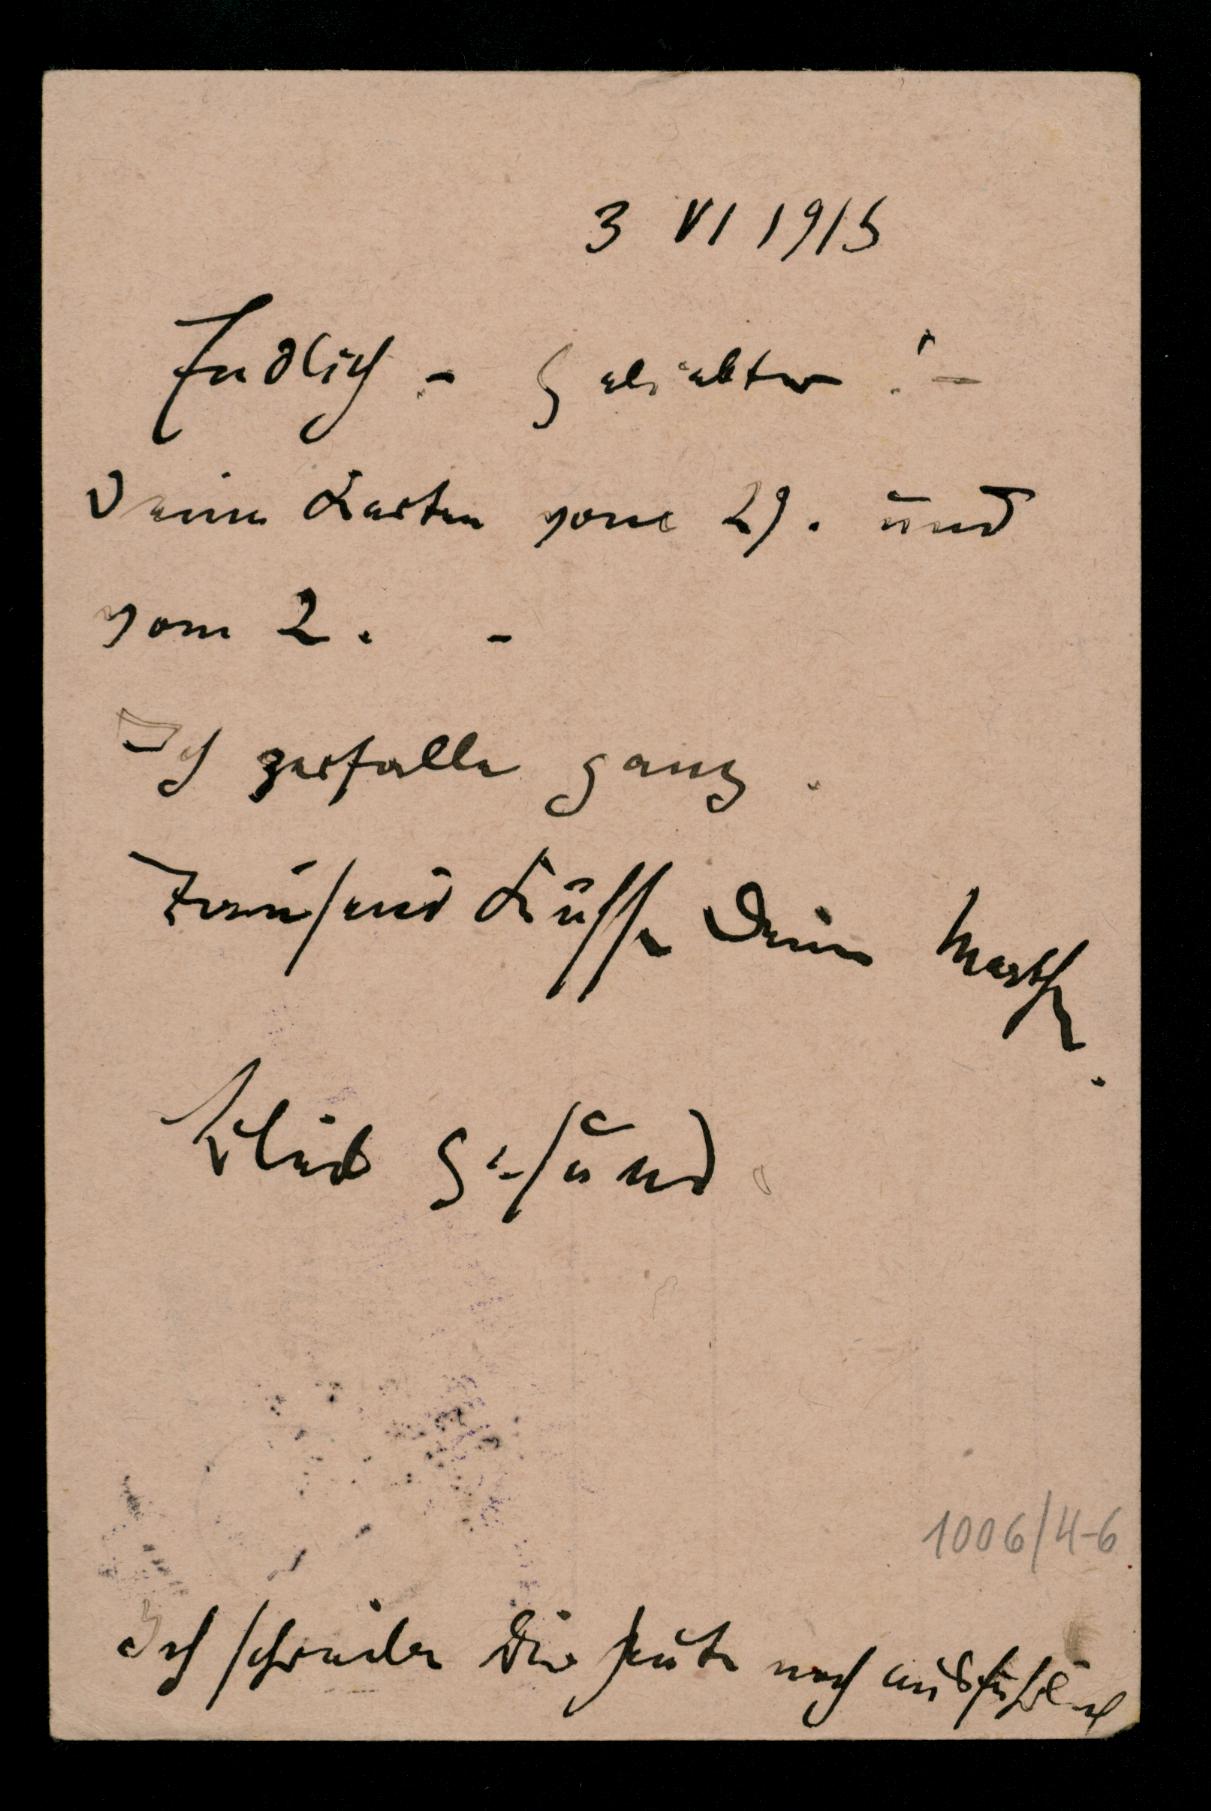 3 VI 1915
Endlich - Geliebter! -
Deine Karten vom 29. und
vom 2. -
Ich zerfalle ganz.
Tausend Küsse Deine Marthe.
Bleib gesund.
1006/4-6
Ich schreibe Dir heute noch ausführlich